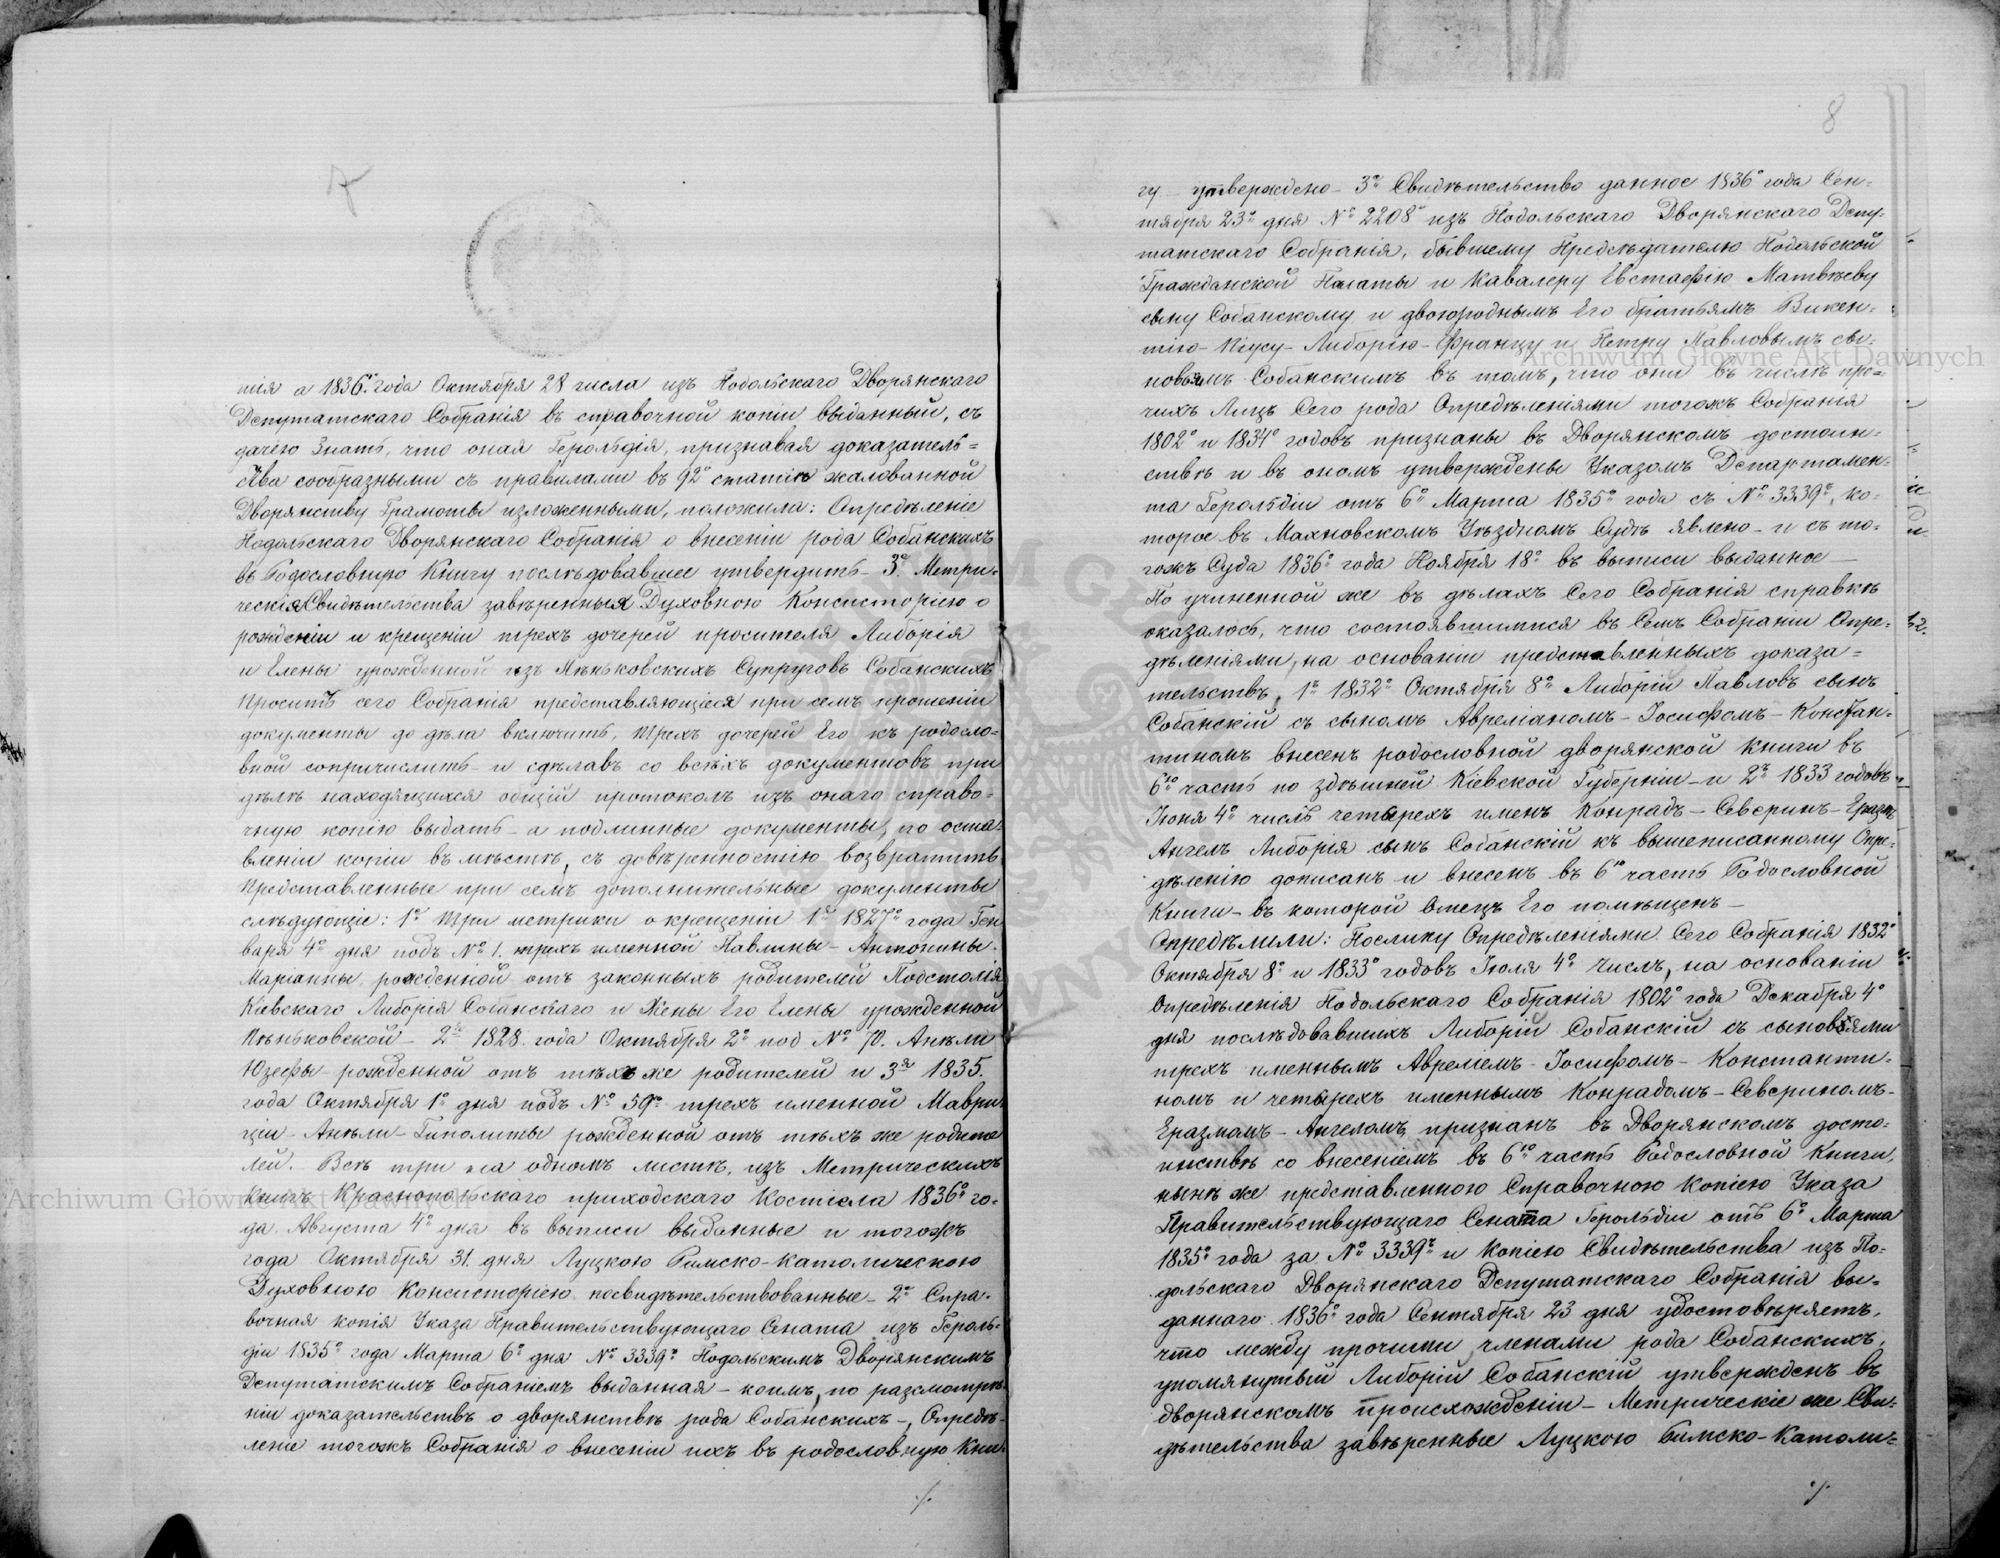 7
тія а 1836го года Октября 28 числа изъ Подольскаго Дворянскаго
Депутатскаго Собранія въ справочной копіи выданный, съ
дачею знать, что оная Герольдія, признавая доказатель=
ства сообразными съ правилами въ 92й статіи жалованной
Дворянству Грамоты изложенными, положила: Опредѣленіе
Подольскаго Дворянскаго Собранія о внесеніи рода Собанскихъ
въ Родословную Книгу послѣдовавшее утвердить – 3е. Метри-
ческія Свидѣтельства завѣренныя Духовною Консисторіею о
рожденіи и крещеніи трехъ дочерей просителя Либорія
и Елены урожденной изъ Пѣньковскихъ Супруговъ Собанскихъ
Проситъ сего Собранія представляющіеся при семъ прошеніи
документы до дѣла включить, трехъ дочерей Его къ родосло-
вной сопричислить – и сдѣлавъ со всѣхъ документовъ при
дѣлѣ находящихся общій протоколъ изъ онаго справо-
чную копію выдать – а подлинные документы, по оста-
вленіи копіи въ мѣстѣ, съ довѣренностію возвратить
Представленные при семъ дополнительные документы
слѣдующіе: 1е Три метрики о крещеніи 1я 1827го года Ген
варя 4го дня подъ № 1. трехъ именной Павлины – Антонины –
Маріанны, рожденной отъ законныхъ родителей Подстолія
Кіевскаго Либорія Собанскаго и Жены Его Елены урожденной
Пѣньковской – 2я 1828 года Октября 2го под № 70. Анѣли
Юзефы – рожденной отъ тѣхъ же родителей и 3я 1835.
года Октября 1го дня подъ № 59мъ трехъ именной Маври-
ціи – Анѣли – Гиполиты рожденной отъ тѣхъ же родите
лей. Всѣ три на одномъ листѣ, изъ Метрическихъ
Книгъ Краснопольскаго приходскаго Костіола 1836го го-
да Августа 4го дня въ выписи выданные и тогожъ
года Октября 31 дня Луцкою Римско-Католическою
Духовною Консисторіею посвидѣтельствованные – 2е Спра-
вочная копія Указа Правительствующаго Сената изъ Героль-
діи 1835го года Марта 6го дня № 3339мъ Подольскимъ Дворянскимъ
Депутатскимъ Собраніемъ выданная – коимъ, по разсмотрѣ-
ніи доказательствъ о дворянствѣ рода Собанскихъ –, Опредѣ-
леніе тогожъ Собранія о внесеніи ихъ въ родословную Кни-
./.
8
гу – утверждено – 3е Свидѣтельство данное 1836го года Сен=
тября 23го дня № 2208 изъ Подольскаго Дворянскаго Депу-
татскаго Собранія, бывшему Предсѣдателю Подольской
Гражданской Палаты и Кавалеру Евстафію Матвѣеву
сыну Собанскому и двоюроднымъ Его братьямъ Викен-
тію – Піусу – Либорію – Францу и Петру Павловымъ сы-
новьямъ Собанскимъ въ томъ, что они въ числѣ про=
чихъ Лицъ Сего рода Опредѣленіями тогожъ Собранія
1802го и 1834го годовъ признаны въ Дворянскомъ достоин-
ствѣ и въ ономъ утверждены Указомъ Департамен-
та Герольдіи отъ 6го Марта 1835го года съ № 3339мъ, ко-
торое въ Махновскомъ Уѣздномъ Судѣ явлено – и съ то-
гожъ Суда 1836го года Ноября 18го въ выписи выданное –
По учиненной же въ дѣлахъ Сего Собранія справкѣ
оказалось, что состоявшимися въ Семъ Собраніи Опре-
дѣленіями, на основаніи представленныхъ доказа=
тельствъ, 1мъ 1832го Октября 8го Либорій Павловъ сынъ
Собанскій съ сыномъ Авреліаномъ – Іосифомъ – Констан-
тиномъ внесенъ родословной дворянской книги въ
6ю часть по здѣшней Кіевской Губерніи – и 2мъ 1833 годовъ
Іюня 4го числъ четырехъ именъ Конрадъ – Северинъ – Еразмъ
Ангелъ Либорія сынъ Собанскій къ вышеписанному Опре-
дѣленію дописанъ и внесенъ въ 6ю часть Родословной
Книги – въ которой Отецъ Его помѣщенъ –
Опредѣлили: Поелику Опредѣленіями Сего Собранія 1832го
Октября 8го и 1833го годовъ Іюля 4го числъ, на основаніи
Опредѣленія Подольскаго Собранія 1802го года Декабря 4го
дня послѣдовавшихъ Либорій Собанскій съ сыновьями
трехъ именнымъ Аврелемъ – Іосифомъ – Константи-
номъ и четырехъ именнымъ Конрадомъ – Севериномъ –
Еразмомъ – Ангеломъ, признанъ въ Дворянскомъ досто-
инствѣ со внесеніемъ въ 6ю часть Родословной Книги,
нынѣ же представленною Справочною копіею Указа
Правительствующаго Сената Герольдіи отъ 6го Марта
1835го года за № 3339мъ и копіею Свидѣтельства изъ По-
дольскаго Дворянскаго Депутатскаго Собранія вы-
даннаго 1836го года Сентября 23 дня удостовѣряетъ,
что между прочими членами рода Собанскихъ,
упомянутый Либорій Собанскій утвержденъ въ
дворянскомъ происхожденіи – Метрическіе же Сви-
дѣтельства завѣренные Луцкою Римско-Католи-
./.
Archiwum Główne Akt Dawnych
Archiwum Główne Akt Dawnych